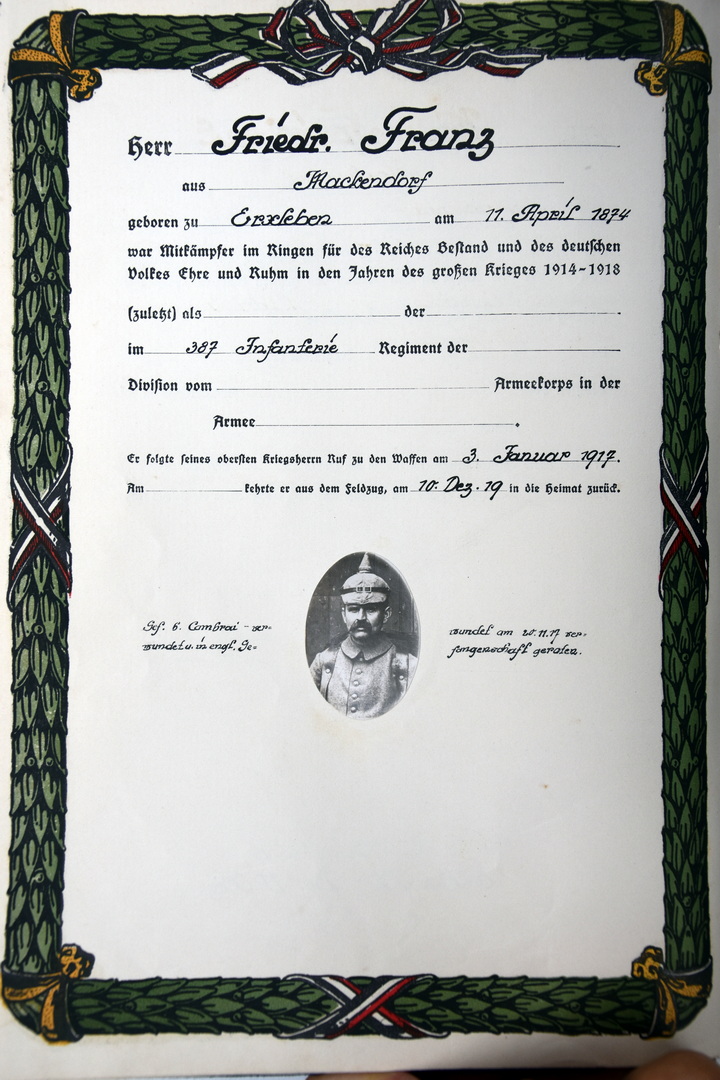 Herr Friedr. Franz
aus Mackendorf
geboren zu Erxleben am 11. April 1874
war Mitkämpfer im Ringen für des Reiches Bestand und des deutschen
Volkes Ehre und Ruhm in den Jahren des großen Krieges 1914-1918
(zuletzt) als der .
im 387 Infanterie Regiment der
Division vom Armeekorps in der
Armee .
Er folgte seines obersten Kriegsherrn Ruf zu den Waffen am 3. Januar 1917.
Am kehrte er aus dem Feldzug, am 10. Dez. 19 in die Heimat zurück.
Gef. b. Cambrai - ver- wundet am 20.11.17 ver-
wundet u. in engl. Ge= fangenschaft geraten.